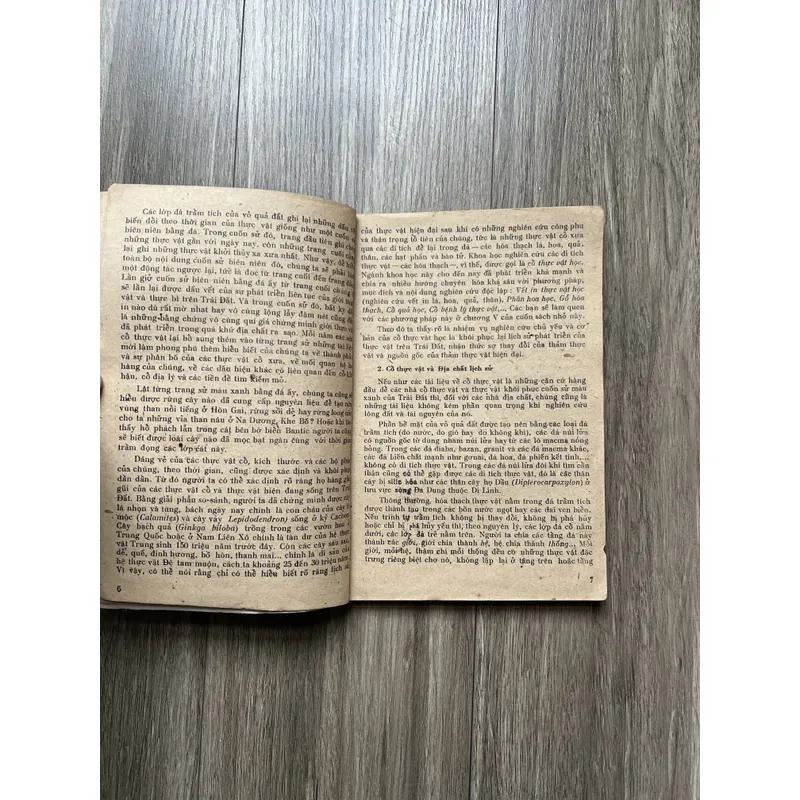 Các lớp đá trầm tích của vỏ quả đất ghi lại những dấu
biến đổi theo thời gian của thực vật giống như một cuốn sử
biên niên bằng đá. Trong cuốn sử đó, trang đầu tiên ghi chép
những thực vật gần với ngày nay, còn những trang cuối
lại ghi những thực vật khởi thủy xa xưa nhất. Như vậy, để
toàn bộ nội dung cuốn sử biên niên đó, chúng ta sẽ phải
một động tác ngược lại, tức là đọc từ trang cuối đến trang đầu.
Lần giở cuốn sử biên niên bằng đá ấy từ trang cuối chúng ta
sẽ lần lại được dấu vết của sự phát triển liên tục của giới
vật và thực bì trên Trái Đất. Và trong cuốn sử đó, bất kỳ
in nào dù rất mờ nhạt hay vô cùng lộng lẫy đậm nét cũng
là những bằng chứng vô cùng quí giá chứng minh giới thực vật
đã phát triển trong quá khứ địa chất ra sao. Mỗi năm các nhà
cổ thực vật lại bổ sung thêm vào từng trang sử những tài liệu
mới làm phong phú thêm hiểu biết của chúng ta về thành phần
và sự phân bố của các thực vật cổ xưa, về mối quan hệ họ
hàng của chúng, về các dấu hiệu khác có liên quan đến cổ khí
hậu, cổ địa lý và các tiền đề tìm kiếm mỏ.
Lật từng trang sử màu xanh bằng đá ấy, chúng ta cũng sẽ
hiểu được rừng cây nào đã cung cấp nguyên liệu để tạo nên
vùng than nổi tiếng ở Hòn Gai, rừng sồi dẻ hay rừng long não
cho ta những vỉa than nâu ở Na Dương, Khe Bố? Hoặc khi tìm
thấy hổ phách lẫn trong cát bên bờ biển Bantic người ta cũng
sẽ biết được loài cây nào đã mọc bạt ngàn cùng với thời gian
trầm đọng các lớp cát này.
Dáng vẻ của các thực vật cổ, kích thước và các bộ phận
của chúng, theo thời gian, cũng được xác định và khôi phục
dần dần. Từ đó người ta có thể xác định rõ ràng họ hàng gần
gũi của các thực vật cổ và thực vật hiện đang sống trên Trái
Đất. Bằng giải phẫu so-sánh, người ta đã chứng minh được rằng
là nhọn và tùng, bách ngày nay chính là con cháu của cây
mộc (Calamites) và cây vảy Lepidodendron) sống ở kỷ Cacbon.
Cây bạch quả (Ginkgo biloba) trồng trong các vườn hoa ở
Trung Quốc hoặc ở Nam Liên Xô chính là tàn dư của hệ thực
vật Trung sinh 150 triệu năm trước đây. Còn các cây sau sau,
dẻ, quế, đinh hương, bồ hòn, thanh mai... chính là di sản của
hệ thực vật Đệ tam muộn, cách ta khoảng 25 đến 30 triệu năm.
Vì vậy, có thể nói rằng chỉ có thể hiểu biết rõ ràng lịch sử
6
của thực vật hiện đại sau khi có những nghiên cứu công phu
và thận trọng tổ tiên của chúng, tức là những thực vật cổ xưa
qua các di tích để lại trong đá — các hóa thạch lá, hoa, quả,
thân, các hạt phấn và bào tử. Khoa học nghiên cứu các di tích
thực vật — các hóa thạch —, vì thế, được gọi là cổ thực vật học.
Ngành khoa học này cho đến nay đã phát triển khá mạnh và
chia ra nhiều hướng chuyên hóa khá sâu với phương pháp,
mục đích và nội dung nghiên cứu độc lập : Vết in thực vật học
(nghiên cứu vết in lá, hoa, quả, thân), Phấn hoa học, Gỗ hóa
thạch, Cổ quả học, Cổ bệnh lý thực vật,.. Các bạn sẽ làm quen
với các phương pháp này ở chương V của cuốn sách nhỏ này.
Theo đó ta thấy rõ là nhiệm vụ nghiên cứu chủ yếu và cơ
bản của cổ thực vật học là khôi phục lại lịch sử phát triển của
thảm thực vật trên Trái Đất, nhận thức sự thay đổi của thảm thực
vật và nguồn gốc của thảm thực vật hiện đại.
2. Cổ thực vật và Địa chất lịch sử
Nếu như các tài liệu về cổ thực vật là những căn cứ hàng
đầu để các nhà cổ thực vật và thực vật khôi phục cuốn sử màu
xanh của Trái Đất thì, đối với các nhà địa chất, chúng cũng là
những tài liệu không kém phần quan trọng khi nghiên cứu
lòng đất và tài nguyên của nó.
Phần bề mặt của vỏ quả đất được tạo nên bằng các loại đá
trầm tích (do nước, do gió hay do không khí), các đá núi lửa
có nguồn gốc từ dung nham núi lửa hay từ các lò macma nóng
bỏng. Trong các đá diaba, bazan, granit và các đá macma khác,
các đá biến chất mạnh như gơnai, đá hoa, đá phiến kết tinh,..
không có di tích thực vật. Trong các đá núi lửa đôi khi tìm cẩn
thận cũng có thể gặp được các di tích thực vật, đó là các thân
cây bị silic hóa như các thân cây họ Dầu (Dipterocarpoxylon) ở
lưu vực sông Đa Dung thuộc Di Linh.
Thông thường, hóa thạch thực vật nằm trong đá trầm tích
được thành tạo trong các bồn nước ngọt hay các đại ven biển.
Nếu trình tự trầm tích không bị thay đổi, không bị phá hủy
hoặc chỉ bị phá hủy yếu thì, theo nguyên lý, các lớp đá cổ nằm
dưới, các lớp đá trẻ nằm trên. Người ta chia các tầng đá này
thành các giới, giới chia thành hệ, hệ chia thành thống.., Mỗi
giới, mỗi hệ, thậm chí mỗi thống đều có những thực vật đặc
trưng riêng biệt cho nó, không lặp lại ở tầng trên hoặc tầng
7